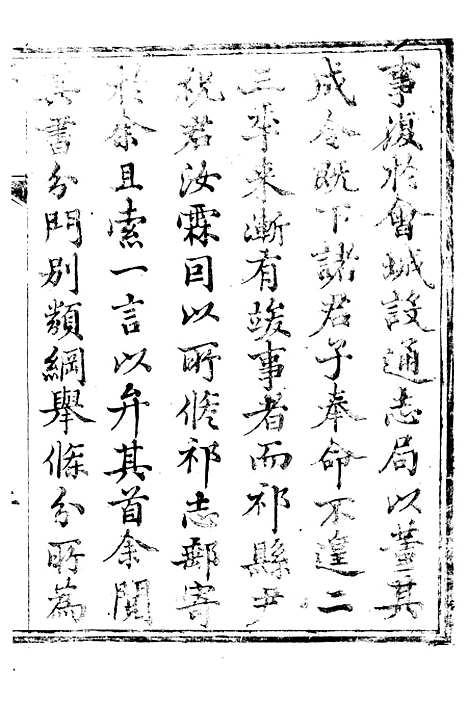 事復於會城設通志局以董其
成令既下諸君子奉命不遑二
三年來漸有竣事者而祁縣尹
祝君汝霖囙以所修祁志郵寄
於余且索一言以弁其首余閱
其書分門別類綱舉條分所篇